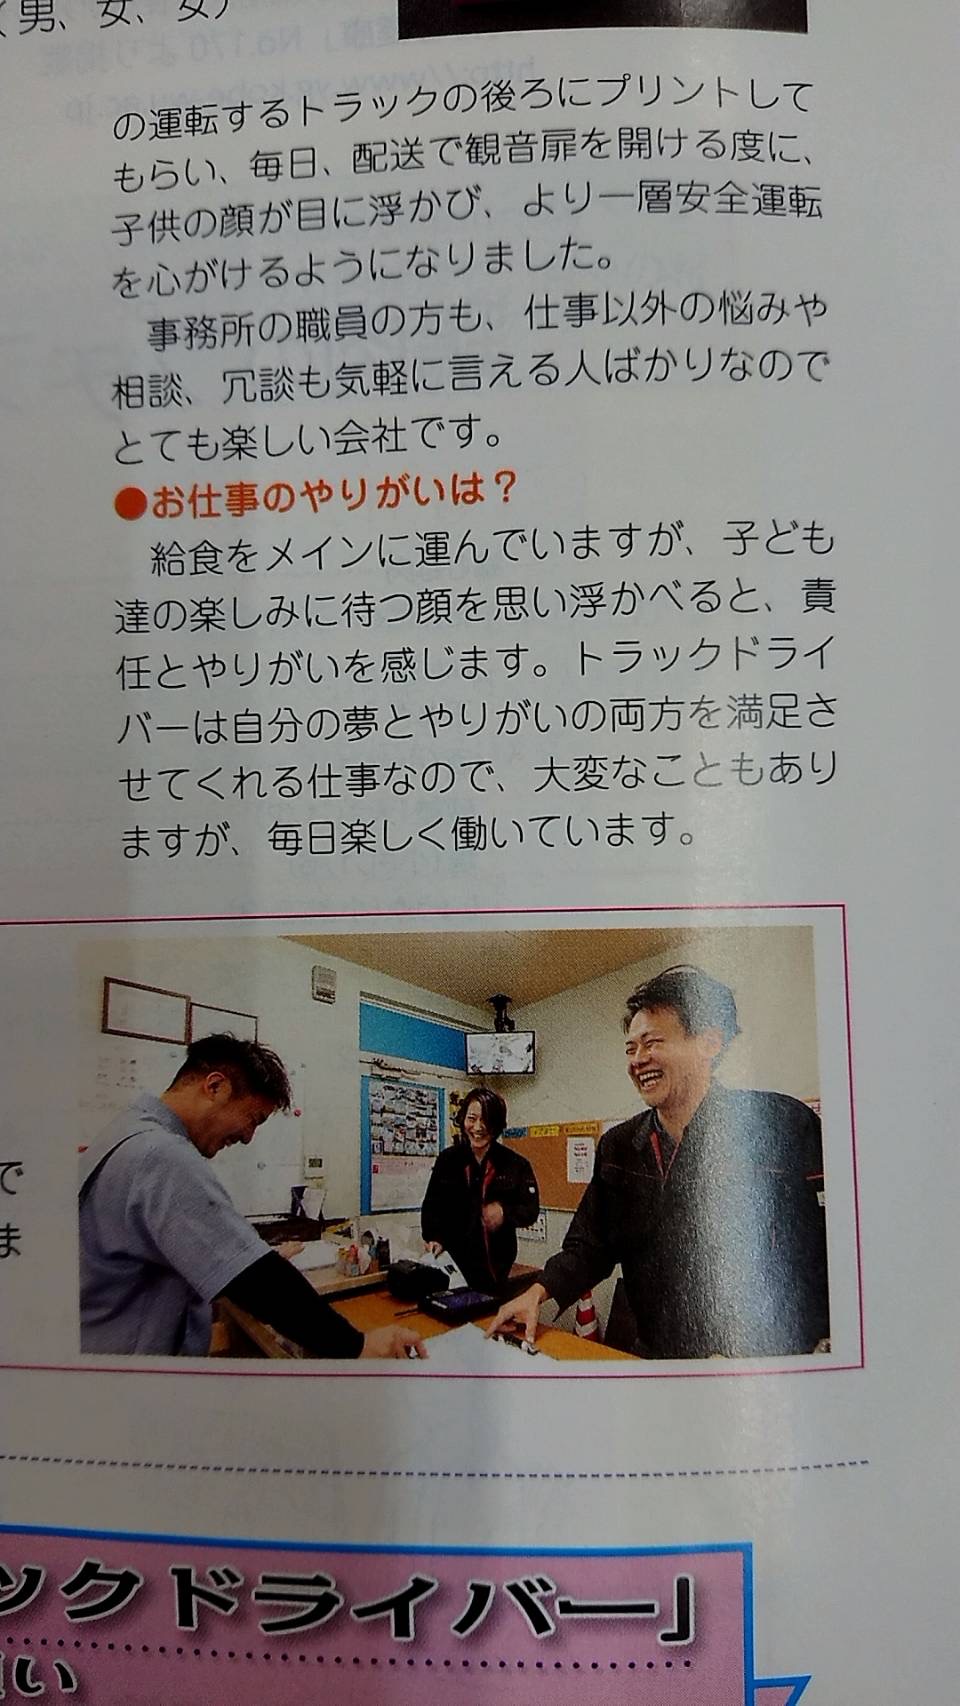 男、女、女）
の運転するトラックの後ろにプリントして
もらい、毎日、配送で観音扉を開ける度に、
子供の顔が目に浮かび、より一層安全運転
を心がけるようになりました。
事務所の職員の方も、仕事以外の悩みや
相談、冗談も気軽に言える人ばかりなので
とても楽しい会社です。
●お仕事のやりがいは？
給食をメインに運んでいますが、子ども
達の楽しみに待つ顔を思い浮かべると、責
任とやりがいを感じます。トラックドライ
バーは自分の夢とやりがいの両方を満足さ
せてくれる仕事なので、大変なこともあり
ますが、毎日楽しく働いています。
で
ま
ックドライバー」
い